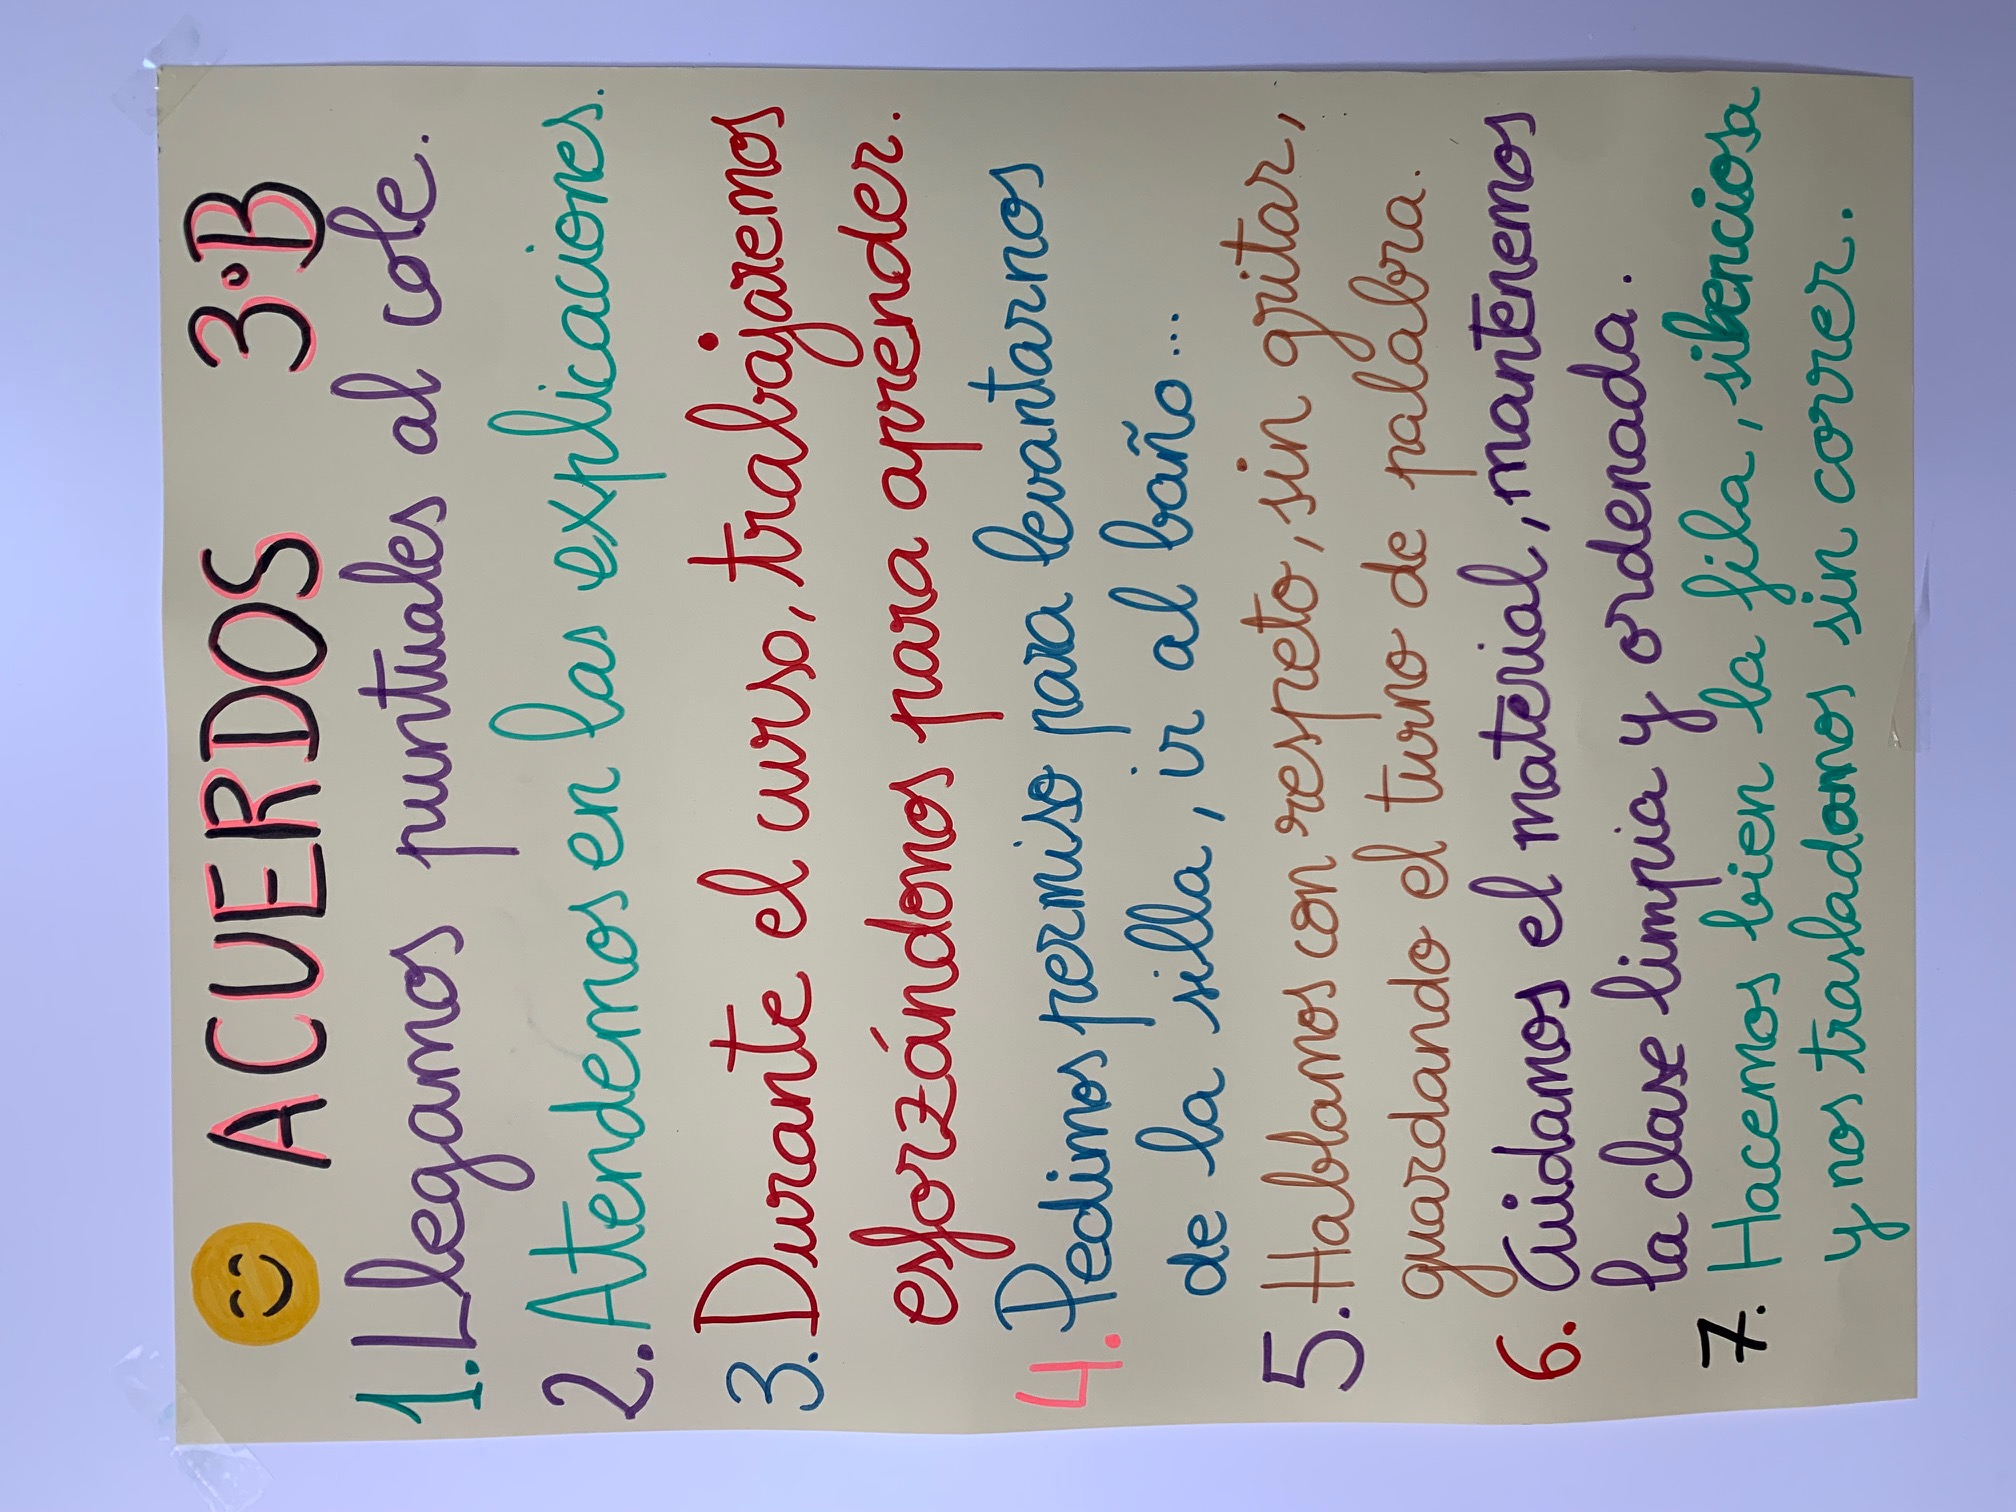 ACUERDOS 3.B
1. Llegamos puntuales al cole.
2. Atendemos en las explicaciones.
3. Durante el curso, trabajaremos
esforzándonos para aprender.
4. Pedimos permiso para levantarnos
de la silla, ir al baño...
5. Hablamos con respeto, sin gritar,
guardando el turno de palabra.
6. Cuidamos el material, mantenemos
la clase limpia y ordenada.
7. Hacemos bien la fila, silenciosa
y nos trasladamos sin correr.